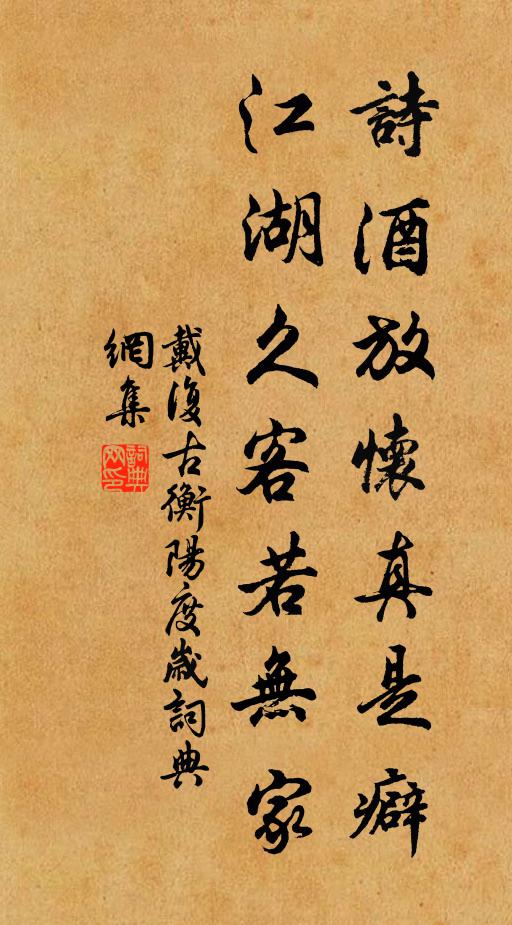 詩酒放懷真是癖
江湖久客若無家
戴復古衡陽度歲詞典
網集
詞典
网印